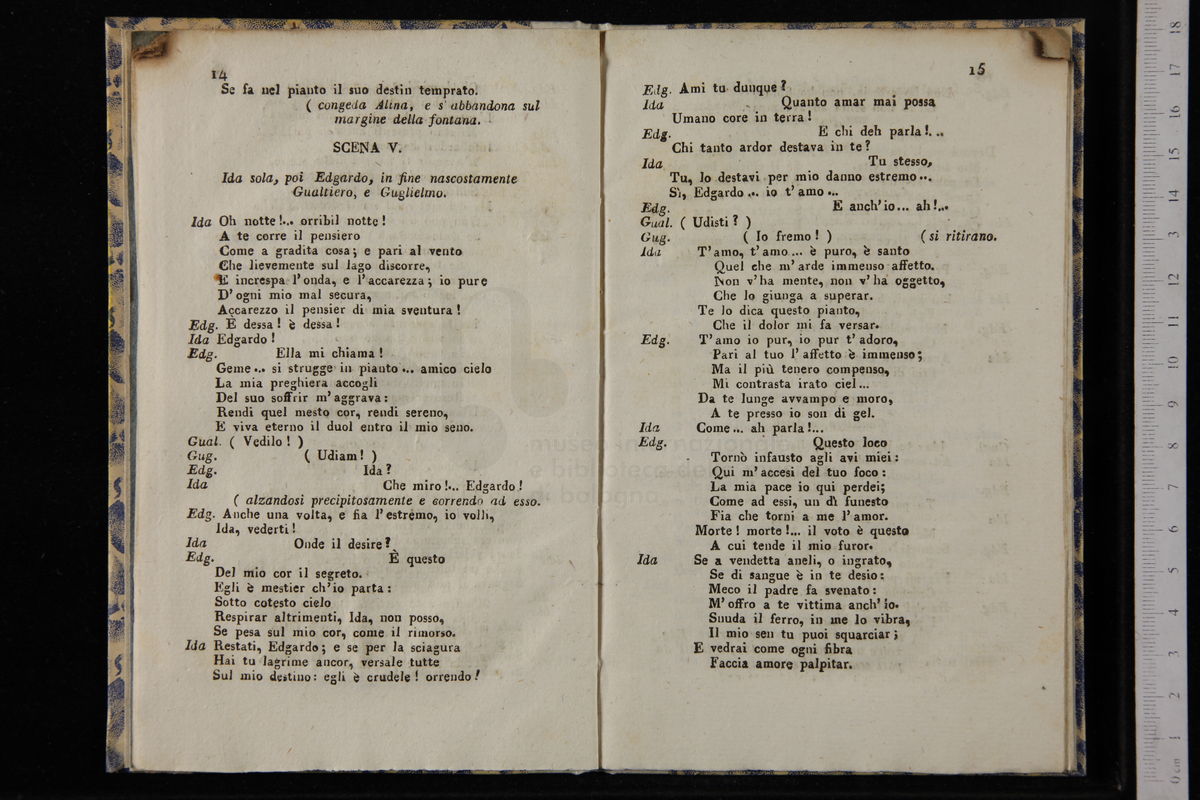 14
Se fa nel pianto il suo destin temprato.
( congeda Alina, e s' abbandona sul
margine della fontana.
SCENA V.
Ida sola, poi Edgardo, in fine nascostamente
Gualtiero, e Guglielmo.
Ida Oh notte!... orribil notte!
A te corre il pensiero
Come a gradita cosa; e pari al vento
Che lievemente sul lago discorre,
E increspa l'onda, e l'accarezza; io pure
D'ogni mio mal secura,
Accarezzo il pensier di mia sventura!
Edg. È dessa! è dessa!
Ida Edgardo!
Edg. Ella mi chiama!
Geme... si strugge in pianto... amico cielo
La mia preghiera accogli
Del suo soffrir m'aggrava:
Rendi quel mesto cor, rendi sereno,
E viva eterno il duol entro il mio seno.
Gual. ( Vedilo! )
Gug. ( Udiam! )
Edg. Ida?
Ida Che miro!... Edgardo!
( alzandosi precipitosamente e correndo ad esso.
Edg. Anche una volta, e fia l'estremo, io volli,
Ida, vederti!
Ida Onde il desire?
Edg. È questo
Del mio cor il segreto.
Egli è mestier ch'io parta:
Sotto cotesto cielo
Respirar altrimenti, Ida, non posso,
Se pesa sul mio cor, come il rimorso.
Ida Restati, Edgardo; e se per la sciagura
Hai tu lagrime ancor, versale tutte
Sul mio destino: egli è crudele! orrendo!
15
Edg. Ami tu dunque?
Ida Quanto amar mai possa
Umano core in terra!
Edg. E chi deh parla!...
Chi tanto ardor destava in te?
Ida Tu stesso,
Tu, lo destavi per mio danno estremo...
Sì, Edgardo... io t'amo...
Edg. E anch'io... ah!...
Gual. ( Udisti? )
Gug. ( Io fremo! ) ( si ritirano.
Ida T'amo, t'amo... è puro, è santo
Quel che m'arde immenso affetto.
Non v'ha mente, non v'ha oggetto,
Che lo giunga a superar.
Te lo dica questo pianto,
Che il dolor mi fa versar.
Edg. T'amo io pur, io pur t'adoro,
Pari al tuo l'affetto è immenso;
Ma il più tenero compenso,
Mi contrasta irato ciel...
Da te lunge avvampo e moro,
A te presso io son di gel.
Ida Come... ah parla!...
Edg. Questo loco
Tornò infausto agli avi miei:
Qui m'accesi del tuo foco:
La mia pace io qui perdei;
Come ad essi, un dì funesto
Fia che torni a me l'amor.
Morte! morte!... il voto è questo
A cui tende il mio furor.
Ida Se a vendetta aneli, o ingrato,
Se di sangue è in te desio:
Meco il padre fa svenato:
M'offro a te vittima anch'io.
Snuda il ferro, in me lo vibra,
Il mio sen tu puoi squarciar;
E vedrai come ogni fibra
Faccia amore palpitar.